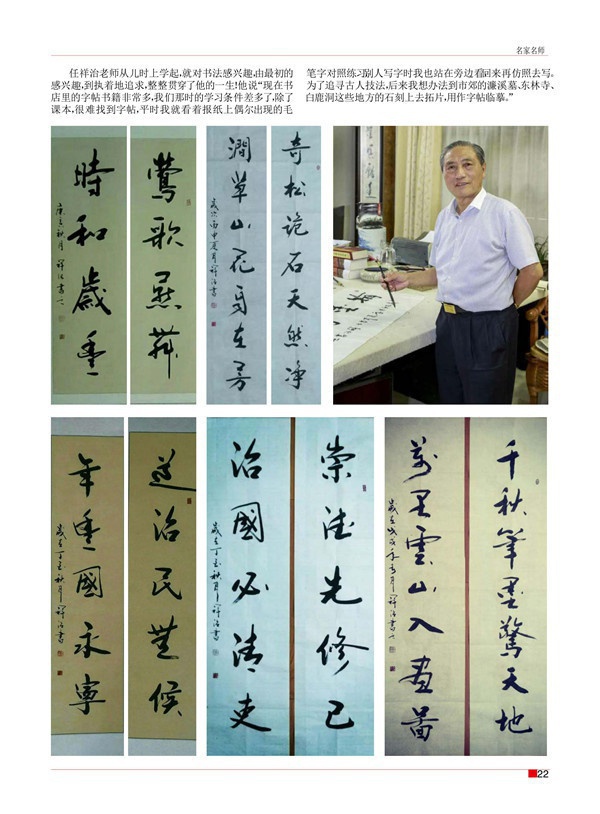 名家名师
任祥治老师从儿时上学起,就对书法感兴趣,由最初的
感兴趣,到执着地追求,整整贯穿了他的一生!他说“现在书
店里的字帖书籍非常多,我们那时的学习条件差多了,除了
课本,很难找到字帖,平时我就看着报纸上偶尔出现的毛
笔字对照练习别人写字时我也站在旁边看回来再仿照去写。
为了追寻古人技法,后来我想办法到市郊的濂溪墓、东林寺、
白鹿洞这些地方的石刻上去拓片,用作字帖临摹。”
莺歌燕舞
時和歲豊
庚寅秋月祥治書
奇松詭石天然净
澗草山花自在芳
歲次丙申夏月祥治書
道治民無侯
年豊國永寧
歲在丁酉秋月祥治書
崇德先修己
治國必清吏
歲在丁酉秋月祥治書
千秋筆墨驚天地
萬里雲山入畫圖
歲在戊戌年
祥治書
22